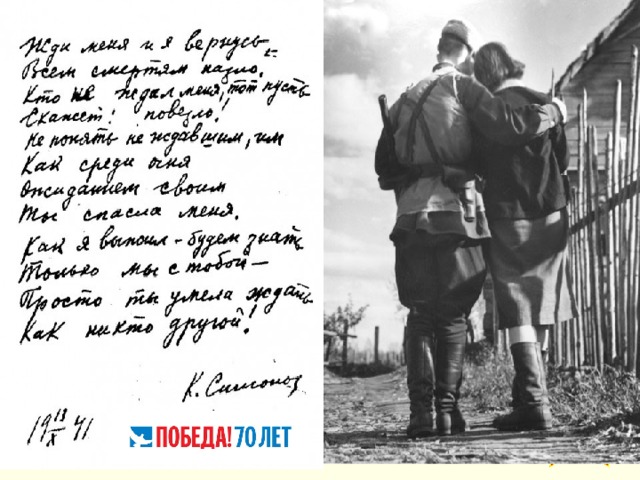 Жди меня и я вернусь
Всем смертям назло.
Кто не ждал меня, тот пусть
Скажет: повезло!
Не понять не ждавшим, им
Как среди огня
Ожиданием своим
Ты спасла меня.
Как я выжил - будем знать
Только мы с тобой —
Просто ты умела ждать
Как никто другой!
К. Симонов
19 13/X 41
ПОБЕДА! 70 ЛЕТ